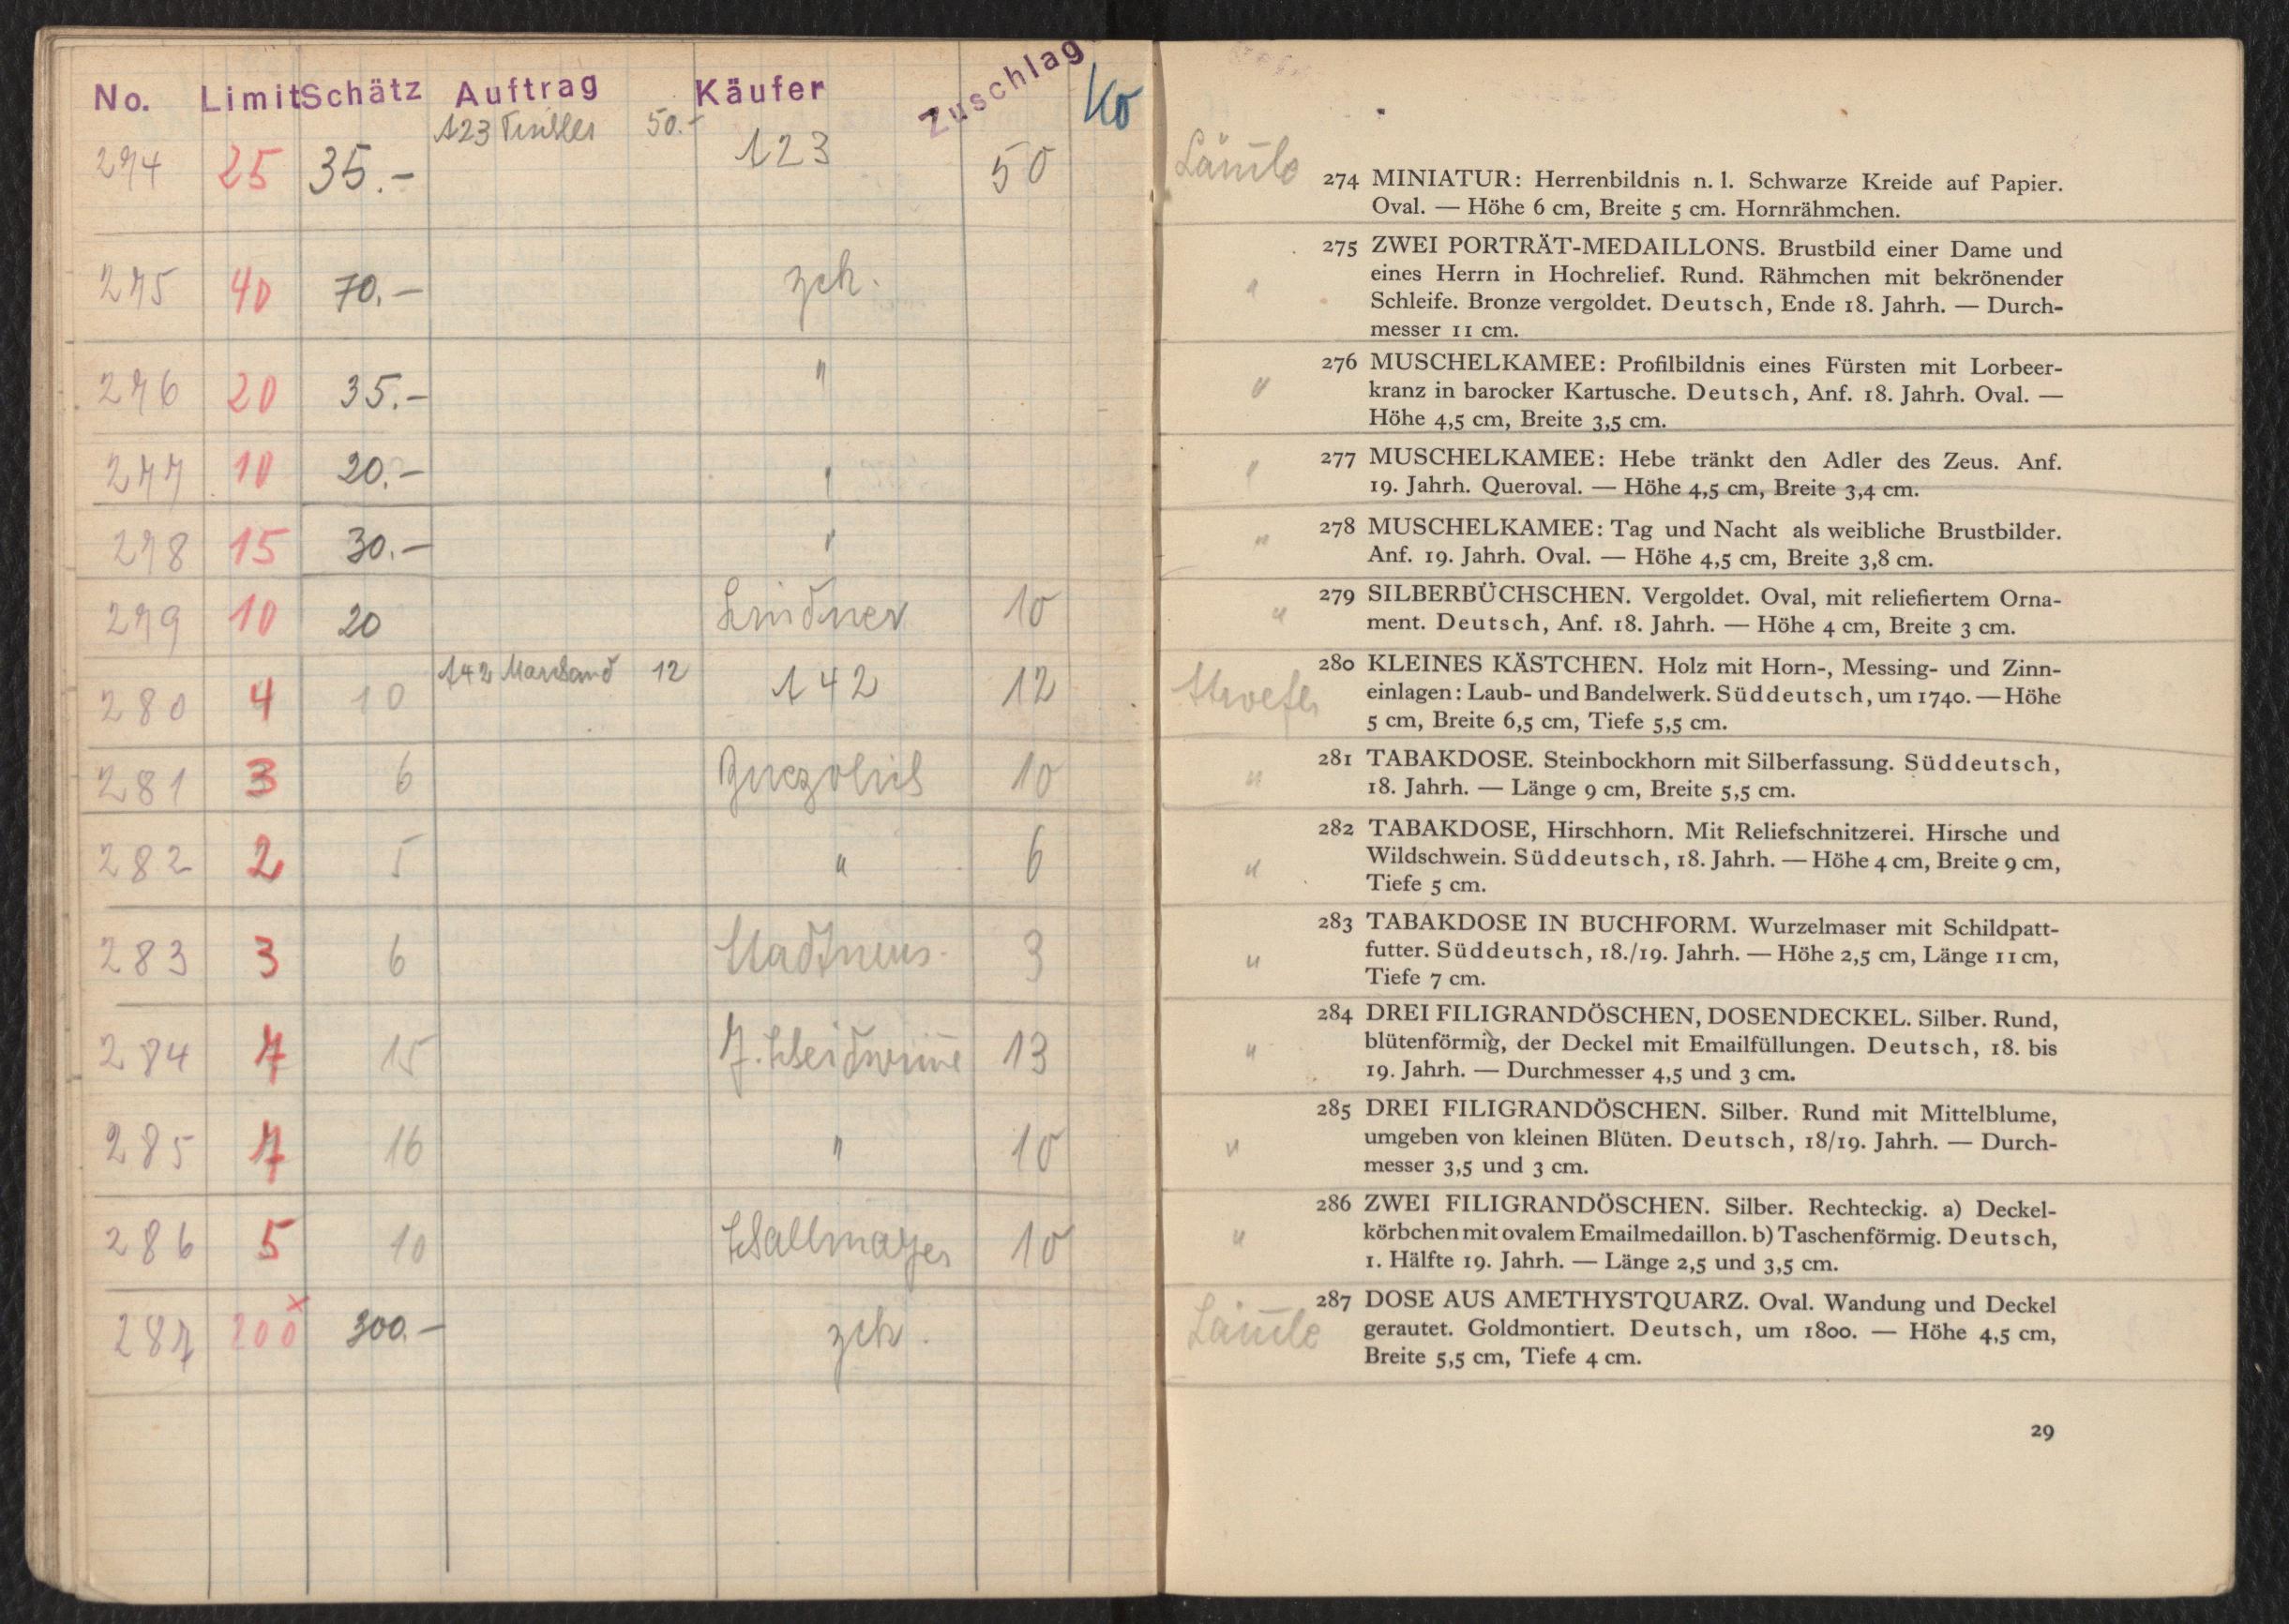 No. Limit Schätz Auftrag Käufer Zuschlag Ko
123 50.-
274 25 35.- 123 50
275 40 70.- zch.
276 20 35.- "
277 10 20.- "
278 15 30.- "
279 10 20 Lindner 10
142 Marchand 12
280 4 10 142 12
281 3 6 10
282 2 5 " 6
283 3 6 3
284 7 15 13
285 7 16 " 10
286 5 10 Wallmayer 10
287 200 x 300.- zch.
Lämle
274 MINIATUR: Herrenbildnis n. l. Schwarze Kreide auf Papier.
Oval. — Höhe 6 cm, Breite 5 cm. Hornrähmchen.
" 275 ZWEI PORTRÄT-MEDAILLONS. Brustbild einer Dame und
eines Herrn in Hochrelief. Rund. Rähmchen mit bekrönender
Schleife. Bronze vergoldet. Deutsch, Ende 18. Jahrh. — Durch-
messer 11 cm.
" 276 MUSCHELKAMEE: Profilbildnis eines Fürsten mit Lorbeer-
kranz in barocker Kartusche. Deutsch, Anf. 18. Jahrh. Oval. —
Höhe 4,5 cm, Breite 3,5 cm.
" 277 MUSCHELKAMEE: Hebe tränkt den Adler des Zeus. Anf.
19. Jahrh. Queroval. — Höhe 4,5 cm, Breite 3,4 cm.
" 278 MUSCHELKAMEE: Tag und Nacht als weibliche Brustbilder.
Anf. 19. Jahrh. Oval. — Höhe 4,5 cm, Breite 3,8 cm.
" 279 SILBERBÜCHSCHEN. Vergoldet. Oval, mit reliefiertem Orna-
ment. Deutsch, Anf. 18. Jahrh. — Höhe 4 cm, Breite 3 cm.
280 KLEINES KÄSTCHEN. Holz mit Horn-, Messing- und Zinn-
einlagen: Laub- und Bandelwerk. Süddeutsch, um 1740. — Höhe
5 cm, Breite 6,5 cm, Tiefe 5,5 cm.
" 281 TABAKDOSE. Steinbockhorn mit Silberfassung. Süddeutsch,
18. Jahrh. — Länge 9 cm, Breite 5,5 cm.
" 282 TABAKDOSE, Hirschhorn. Mit Reliefschnitzerei. Hirsche und
Wildschwein. Süddeutsch, 18. Jahrh. — Höhe 4 cm, Breite 9 cm,
Tiefe 5 cm.
" 283 TABAKDOSE IN BUCHFORM. Wurzelmaser mit Schildpatt-
futter. Süddeutsch, 18./19. Jahrh. — Höhe 2,5 cm, Länge 11 cm,
Tiefe 7 cm.
" 284 DREI FILIGRANDÖSCHEN, DOSENDECKEL. Silber. Rund,
blütenförmig, der Deckel mit Emailfüllungen. Deutsch, 18. bis
19. Jahrh. — Durchmesser 4,5 und 3 cm.
" 285 DREI FILIGRANDÖSCHEN. Silber. Rund mit Mittelblume,
umgeben von kleinen Blüten. Deutsch, 18/19. Jahrh. — Durch-
messer 3,5 und 3 cm.
" 286 ZWEI FILIGRANDÖSCHEN. Silber. Rechteckig. a) Deckel-
körbchen mit ovalem Emailmedaillon. b) Taschenförmig. Deutsch,
1. Hälfte 19. Jahrh. — Länge 2,5 und 3,5 cm.
Lämle
287 DOSE AUS AMETHYSTQUARZ. Oval. Wandung und Deckel
gerautet. Goldmontiert. Deutsch, um 1800. — Höhe 4,5 cm,
Breite 5,5 cm, Tiefe 4 cm.
29